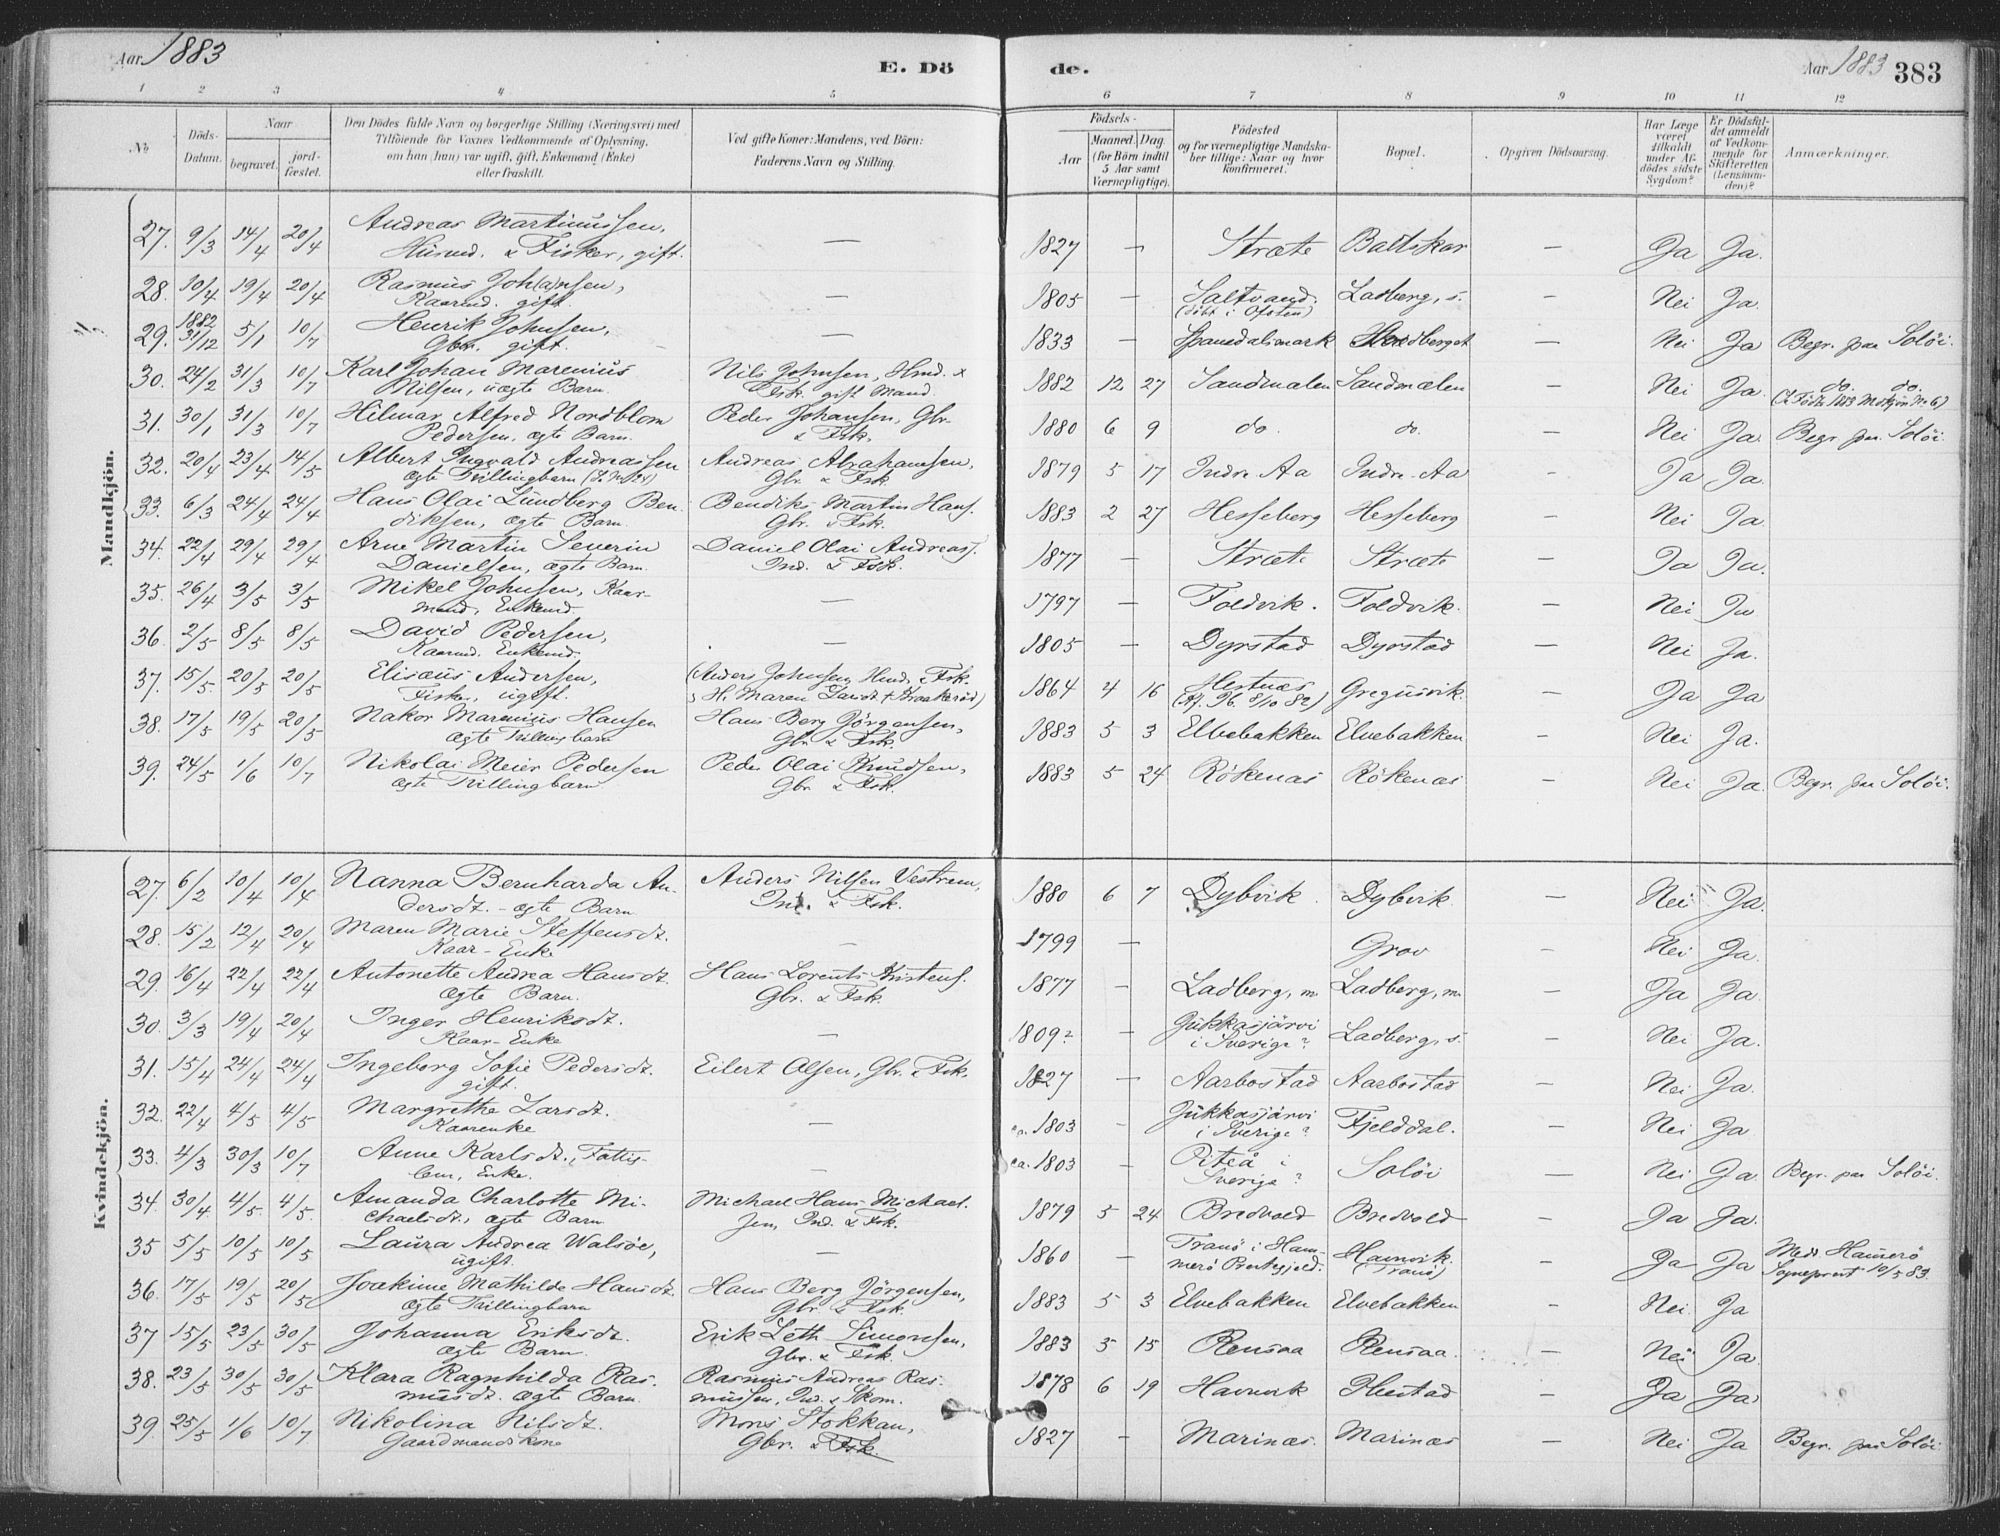 Aar 1883
E. Dö
de.
Aar 1883
383
1 2 3 4 5 6 7 8 9 10 11 12
No
Döds-Datum.
Naar
begravet.
jordfæstet.
Den Dödes fulde Navn og borgerlige Stilling (Næringsvei) med
Tilföiende for Voxnes Vedkommende af Oplysning,
om han (hun) var ugift, gift, Enkemand (Enke)
eller fraskilt.
Ved gifte Koner: Mandens, ved Börn:
Faderens Navn og Stilling.
Födsels-
Aar
Maaned. Dag.
(for Börn indtil
5 Aar samt
Værnepligtige).
Födested
og for værnepligtige Mandskaber tillige: Naar og hvor
konfirmeret.
Bopæl.
Opgiven Dödsaarsag.
Har Læge
været
tilkaldt
under Afdödes sidste
Sygdom?
Er Dödsfaldet anmeldt
af Vedkommende for
Skifteretten
(Lensmanden)?
Anmærkninger.
Mandkjön.
27. 9/3 14/4 20/4 Andreas Martinussen, — 1827 — Stræte Baltskar — Ja Ja.
Husmd. & Fisker, gift.
28. 10/4 19/4 20/4 Rasmus Joh(a)nsen, — 1805 — Saltvand. Ladberg, s. — Nei Ja.
Kaarmd. gift. (döbt i Ofoten)
29. 1882 31/12 5/1 10/7 Henrik Johnsen, — 1833 — Spanedalsmark — Nei Ja Begr. paa Solöi.
Gbr. gift.
30. 24/2 31/3 10/7 Karl Johan Marenius Nils Johnsen, Hmd. & 1882 12 27 Sandmælen Sandmælen — Nei Ja. do. do.
Nilsen, uægte Barn. Fsk. gift Mand. (J. Födte 1883 Mskjön No 6)
31. 30/1 31/3 10/7 Hilmar Alfred Nordblom Peder Johansen, Gbr. 1880 6 9 do. do. — Nei Ja. Begr. paa Solöi.
Pedersen, ægte Barn. & Fsk.
32. 20/4 23/4 14/5 Albert Ingvald Andreassen Andreas Abrahamsen, 1879 5 17 Indre Aa Indre Aa — Ja Ja.
ægte Tvillingbarn Gbr. & Fsk.
33. 6/3 24/4 24/4 Hans Olai Lundberg Ben- Bendiks Martin Hans. 1883 2 27 Hesseberg Hesseberg — Nei Ja.
diksen, ægte Barn. Gbr. & Fsk.
34. 22/4 29/4 29/4 Arne Martin Severin Daniel Olai Andreass. 1877 — Stræte Stræte — Ja Ja.
Danielsen, ægte Barn. Ind. & Fsk.
35. 26/4 3/5 3/5 Mikel Johnsen, Kaar- — 1797 — Foldvik. Foldvik. — Nei Ja
mand, Enkemd.
36. 2/5 8/5 8/5 David Pedersen, — 1805 — Dyrstad Dyrstad — Nei Ja.
Kaarmd. Enkemd.
37. 15/5 20/5 20/5 Elisæus Andersen, (Anders Johnsen, Hmd. & Fsk. 1864 4 16 Hestnæs Gregusvik. — Ja Ja
Fisker, ugift. & H. Maren (Kf. Ib. 8/10 82)
38. 17/5 19/5 20/5 Nakor Marenius Hansen Hans Berg Jörgensen, 1883 5 3 Elvebakken Elvebakken — Nei Ja.
ægte Tvillingbarn Gbr. & Fsk.
39. 24/5 1/6 10/7 Nikolai Meier Pedersen Peder Olai Knudsen, 1883 5 24 Rökenæs Rökenæs — Nei Ja. Begr. paa Solöi.
ægte Tvillingbarn Gbr. & Fsk.
Kvindekjön.
27. 6/2 10/4 10/4 Nanna Bernharda An- Anders Nilsen Vestrem, 1880 6 7 Dybvik. Dybvik — Nei Ja.
dersdt. - ægte Barn Ind. & Fsk.
28. 15/2 12/4 20/4 Maren Marie Steffensdt. — 1799 — Grov — Nei Ja.
Kaar-Enke
29. 16/4 22/4 22/4 Antonette Andrea Hansdt. Hans Lorents Kristens. 1877 — Ladberg, m. Ladberg, m. — Ja Ja.
ægte Barn. Gbr. & Fsk.
30. 3/3 19/4 20/4 Inger Henriksdt. — 1809? — Jukkasjärvi Ladberg, s. — Nei Ja.
Kaar-Enke i Sverige?
31. 15/4 24/4 24/4 Ingeborg Sofie Pedersdt. Eilert Olsen, Gbr. & Fsk. 1827 — Aarbostad Aarbostad — Nei Ja.
gift.
32. 22/4 4/5 4/5 Margrethe Larsdt. — ca. 1803 — Jukkasjärvi Fjelddal. — Nei Ja
Kaarenke i Sverige?
33. 4/3 30/3 10/7 Anne Karlsdt., Fattig- — ca. 1803 — Piteå i Solöi — Nei Ja Begr. paa Solöi.
lem, Enke. Sverige?
34. 30/4 4/5 4/5 Amanda Charlotte Mi- Michael Hans Michael- 1879 5 24 Bredvold Bredvold — Ja Ja.
chaelsdt., ægte Barn sen, Ind. & Fsk.
35 5/5 10/5 10/5 Laura Andrea Walsöe, — 1860 — Tranö i Ham- Havnvik. — Ja Ja Meds. Hamerö
ugift. merö Præstegjeld. (Tranö) Sogneprest 10/5 83.
36. 17/5 19/5 20/5 Joakime Mathilde Hansdt. Hans Berg Jörgensen, 1883 5 3 Elvebakken Elvebakken — Nei. Ja
ægte Tvillingbarn Gbr. & Fsk.
37 15/5 23/5 30/5 Johanna Eriksdt. Erik Leth Simonsen, 1883 5 15 Rensaa Rensaa. — Nei Ja.
ægte Barn. Gbr. & Fsk.
38. 23/5 30/5 30/5 Klara Ragnhilda Ras- Rasmus Andreas Ras- 1878 6 19 Havnvik — Ja Ja.
musdt. ægte Barn mussen, Ind. & Skom.
39. 25/5 1/6 10/7 Nikolina Nilsdt. Mons Stokkan, 1827 — Marinæs. Marinæs — Nei Ja Begr. paa Solöi.
Gaardmandskone Gbr. & Fsk.